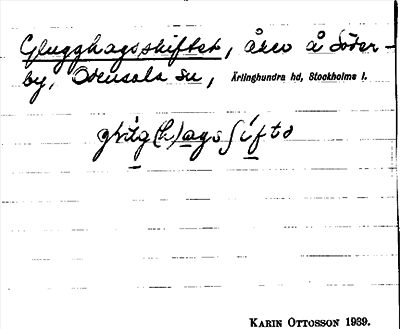 Glugghagsskiftet, åker å Söder-
by, Odensala sn, Ärlinghundra hd, Stockholms l.
KARIN OTTOSSON 1939.